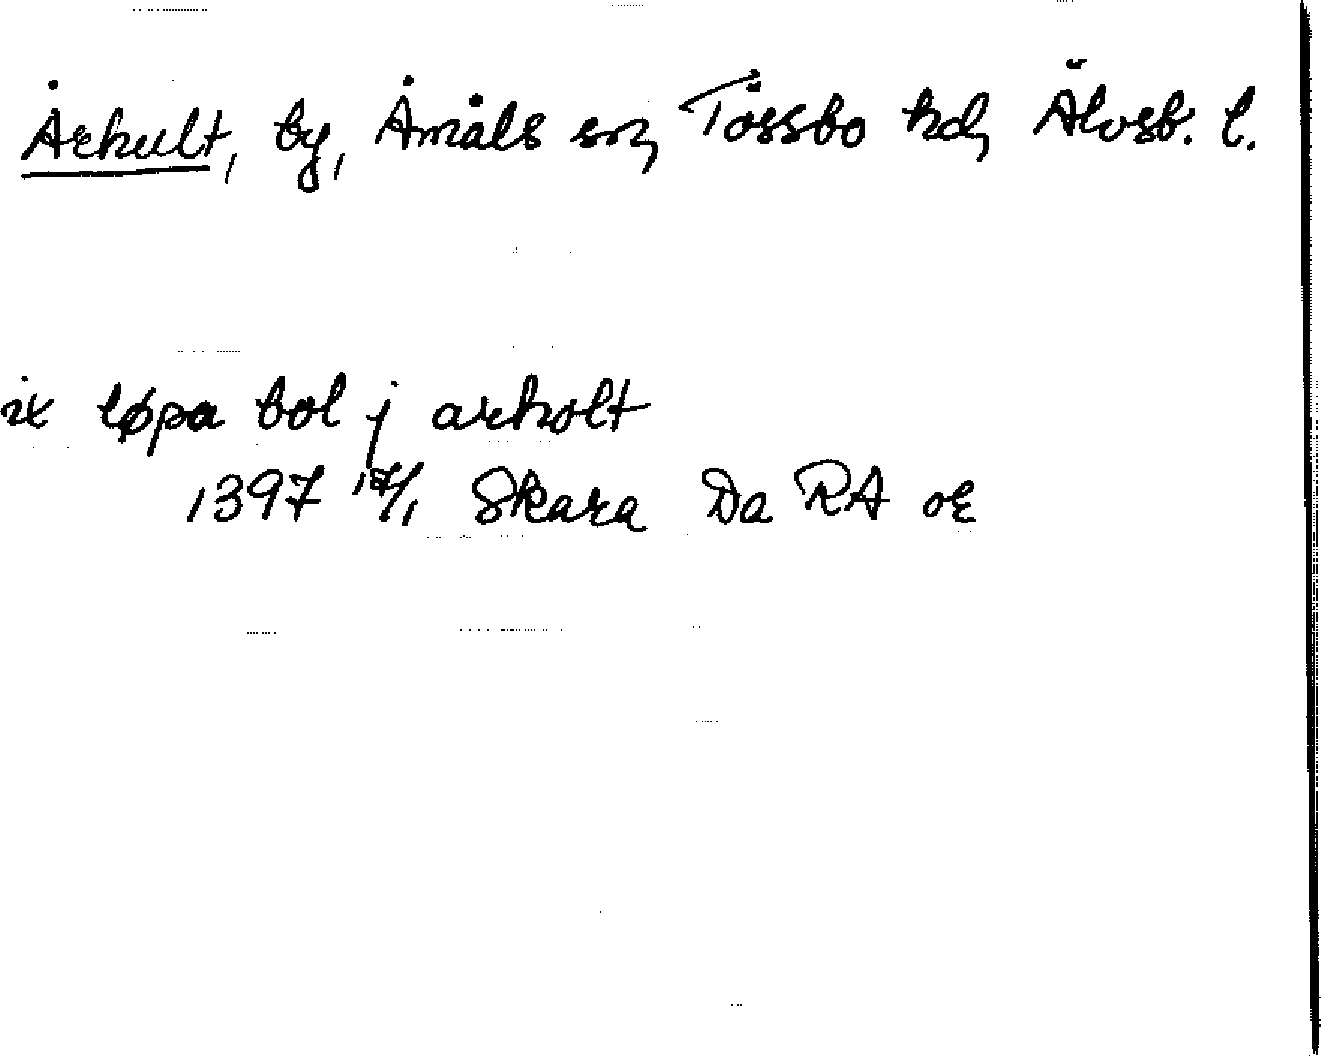 Århult, by, Åmåls sn, Tössbo hd, Älvsb. l.
ix løpa bol j arholt
1397 17/1 Skara Da RA or